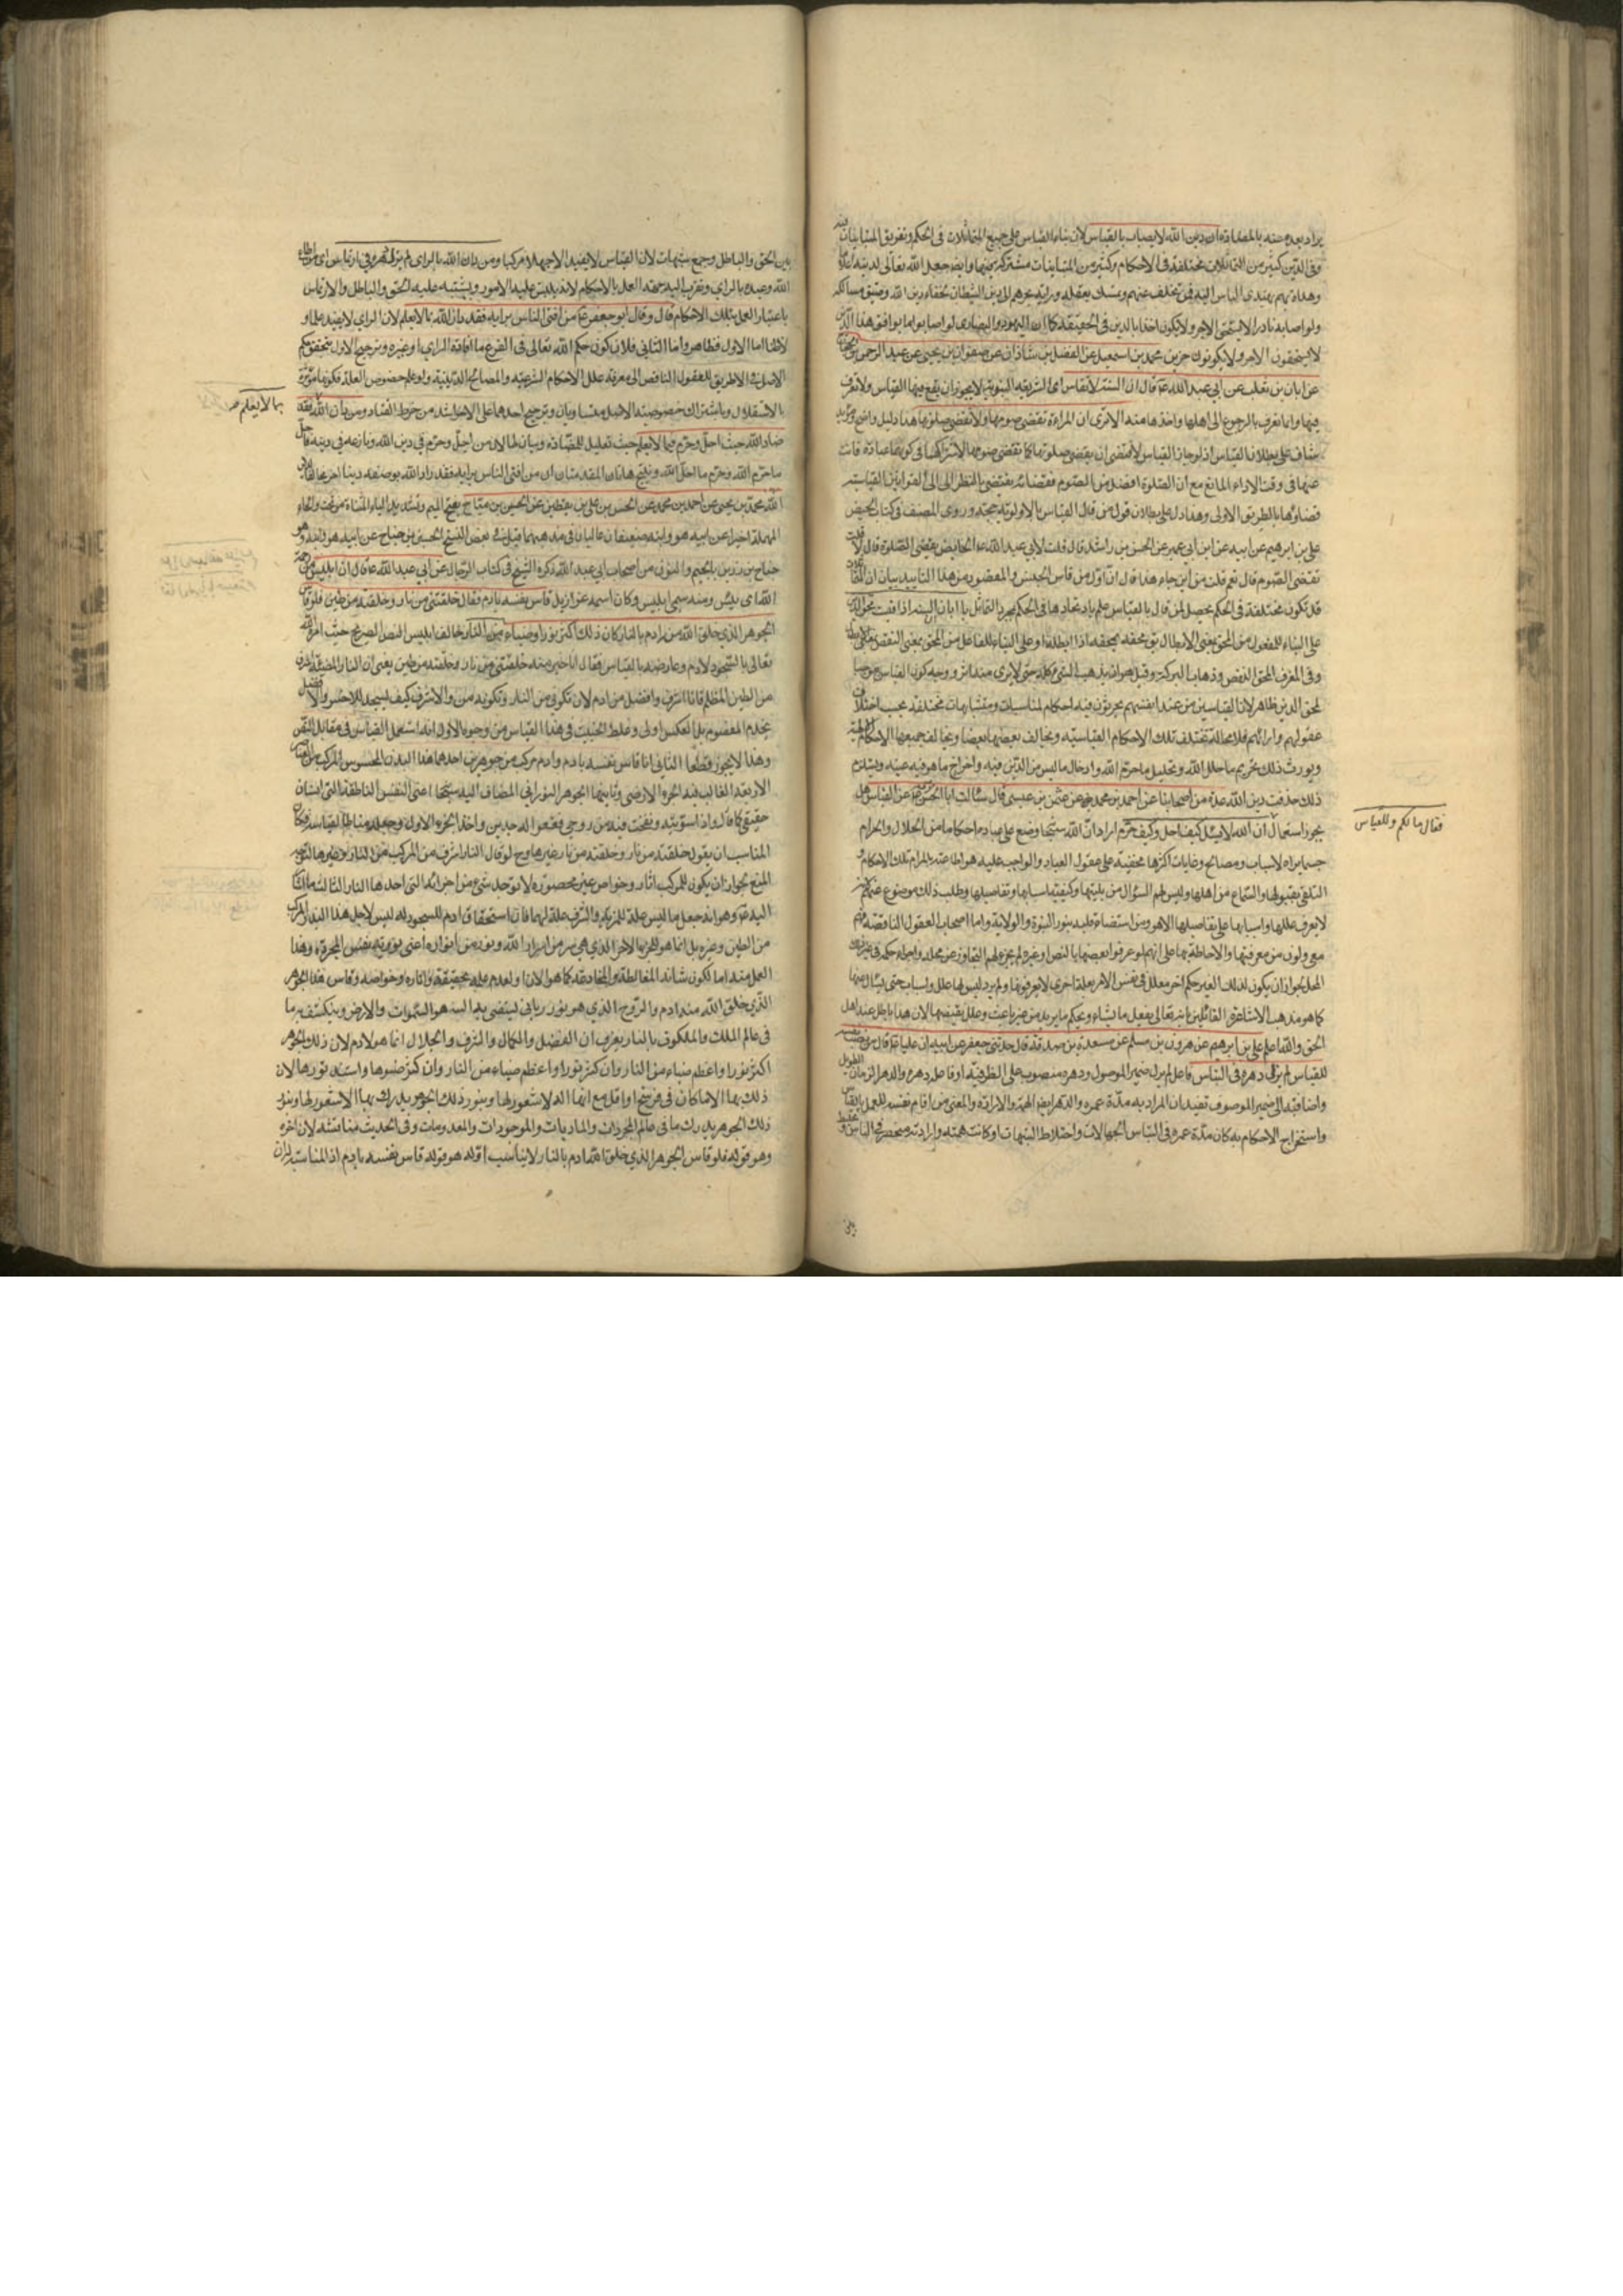 يراد بعده منه بالمضادة ان دين الله لا يصاب بالقياس لان بناء القياس على جمع المتماثلات في الحكم وتفريق المتباينات فيه
وفي الدين كثير من المتماثلات مختلفة في الاحكام وكثير من المتباينات مشتركة فيها وايضا جعل الله تعالى لدينه
وهداه بهم يهتدى الناس اليه فمن تخلف عنهم وتمسك بعقله ورايه يجرهم الى دين الشيطان خفاء دين الله وضيق مسالكه
ولو اصابه نادرا لا يستحق الاجر ولا يكون اخذا بالدين في الحقيقة كما ان اليهود والنصارى لو اصابوا ما يوافق هذا الدين
لا يستحقون الاجر ولا يكونون محمد بن اسمعيل عن الفضل بن شاذان عن صفوان بن يحيى عن عبد الرحمن بن الحجاج
عن ابان بن تغلب عن ابي عبد الله ع قال ان السنة لا تقاس اي الشريعة النبوية لا يجوز ان يقع فيها القياس ولا تعرف
فيها وانما تعرف بالرجوع الى اهلها واخذها منه الا ترى ان المراة تقضي صومها ولا تقضي صلوتها هذا دليل واضح
شاف على بطلان القياس اذ لو جاز القياس لاقتضى ان يقضى صلوتها كما تقضى صومها لاشتراكهما في كونهما عبادة فاتت
عنها في وقت الاداء المانع مع ان الصلوة افضل من الصوم فقضاؤه يقتضي بالنظر الى القوانين القياسية
قضاؤها بالطريق الاولى وهذا دل على بطلان قول من قال القياس بالاولوية حجة وروى المصنف في كتاب الحيض
علي بن ابرهيم عن ابيه عن ابن ابي عمير عن الحسن بن راشد قال قلت لابي عبد الله ع الحائض يقضي الصلوة قال لا قلت
تقضي الصوم قال نعم قلت من اين جاء هذا قال ان اول من قاس ابليس والمقصود من هذا التاييد بيان ان
قد تكون مختلفة في الحكم يحصل لمن قال بالقياس علم باتحادها في الحكم بمجرد التماثل يا ابان السنة اذا قيست محق الدين
على البناء للمفعول من المحق بمعنى الابطال يق محقه يمحقه اذا ابطله او على البناء للفاعل من المحق بمعنى النقص
وفي المغرب المحق النقص وذهاب البركة وقيل هو ان يذهب الشيء كله حتى لا يرى منه اثر ووجه كون القياس موجبا
لمحق الدين ظاهر لان القياسين من عند انفسهم يجرون فيه احكام لمناسبات ومتشابهات مختلفة بحسب اختلاف
عقولهم وارائهم فلا محالة تختلف تلك الاحكام القياسية ويخالف بعضها بعضا ويخالف جميعها الاحكام الالهية
ويورث ذلك تحريم ما حلل الله وتحليل ما حرم الله وادخال ما ليس من الدين فيه واخراج ما هو فيه عنه ويستلزم
ذلك حذفت دين الله عدة من اصحابنا عن احمد بن محمد عن عثمن بن عيسى قال سئلت ابا الحسن موسى ع عن القياس هل
يجوز استعمال ان الله لا يسئل كيف احل وكيف حرم اراد ان الله سبحانه وضع على عباده احكاما من الحلال والحرام
حسبما يراه لاسباب ومصالح وغايات اكثرها مخفية على عقول العباد والواجب عليه هو اطاعته بالتزام تلك الاحكام و
التلقي بقبولها والسماع من اهلها وليس لهم السؤال من بليتها وكيفية اسبابها وتفاصيلها وطلب ذلك موضوع عنهم
لا يعرف عللها واسبابها على تفاصيلها الا هو ومن استضاء قلبه بنور النبوة والولاية واما اصحاب العقول الناقصة فهم
معزولون من معرفتها والاحاطة بها على انهم لو عرفوا بعضها بالنص او غيره لم يجز لهم التجاوز عن محله واجراء حكمه في غير ذلك
المحل لجواز ان يكون لذلك الغير حكم اخر معلل في نفس الامر بعلة اخرى لا يعرفونها ولم يرد ليس لها علل واسباب حتى يسئل عنها
كما هو مذهب الاشاعرة القائلين بانه تعالى يفعل ما يشاء ويحكم ما يريد من غير باعث وعلة يقتضيها لان هذا باطل عند اهل
الحق والله اعلم علي بن ابرهيم عن هرون بن مسلم عن مسعدة بن صدقة قال حدثني جعفر عن ابيه ان عليا ع قال من نصب نفسه
للقياس لم يزل دهره في التباس فاعل لم يزل ضمير الموصول ودهره منصوب على الظرفية اوفاعله دهره والدهر الزمان الطويل
واضافته الى ضمير الموصوف تفيد ان المراد به مدة عمره والدهر ايضا الهمة والارادة والمعنى من اقام نفسه للعمل بالقياس
واستخراج الاحكام به كان مدة عمره في التباس الجهالات واختلاط الشبهات او كانت همته وارادته منحصرة في التباس
فقال ما لكم وللقياس
بين الحق والباطل وجمع شبهات لان القياس لا يفيد الا جهلا مركبا ومن دان الله بالراي لم يزل دهره في ارتماس اي من اطاع
الله وعبده بالراي وتقرب اليه بجهة العمل بالاحكام لانه يلتبس عليه الامور ويشتبه عليه الحق والباطل والارتماس
باعتبار العمل بتلك الاحكام قال وقال ابو جعفر ع من افتى الناس برايه فقد دان الله بما لا يعلم لان الراي لا يفيد علما و
لا ظنا اما الاول فظاهر واما الثاني فلان كون حكم الله تعالى في الفرع ما افاده الراي او غيره وترجيح الاول بتحقق حكم
الاصل الا طريق للعقول الناقص الى معرفة علل الاحكام الشرعية والمصالح الدينية ولو علم خصوص العلة فكونها مؤثرة
بالاستقلال وباشتراك خصوصية الاصل متساويان وترجيح احدهما على الاخر اشد من خرط القتاد ومن دان الله فقد
بما لا يعلم صح
ضاد الله حيث احل وحرم فيما لا يعلم حيث تعليل للمضادة وبيان لها لان من احل وحرم في دين الله ونازعه في دينه فاحل
ما حرم الله وحرم ما احل الله وينتج هاتان المقدمتان ان من افتى الناس برايه فقد راد الله بوضعه دينا اخر مخالفا لدين
الله محمد بن يحيى عن احمد بن محمد عن الحسن بن علي بن يقطين عن الحسين بن مياح بفتح الميم وتشديد الياء المثناة من تحت والحاء
المهملة اخيرا عن ابيه هو وابنه ضعيفان غاليان في مذهبهما قيل في بعض النسخ الحسين بن جناح عن ابيه هو
جناح بن رزين بالجيم والنون من اصحاب ابي عبد الله ذكره الشيخ في كتاب الرجال عن ابي عبد الله ع قال ان ابليس من رحمة
الله اي يئس ومنه سمي ابليس وكان اسمه عزازيل قاس نفسه بادم وقال خلقتني من نار وخلقته من طين فلو قاس
الجوهر الذي خلق الله من ادم بالنار كان ذلك اكثر نورا وضياء من النار خالف ابليس النص الصريح حيث امره الله
تعالى بالسجود لادم وعارضه بالقياس فقال انا خير منه خلقتني من نار وخلقته من طين يعني ان النار المضيئة اشرف
من الطين المظلم فانا اشرف وافضل من ادم لان تكوني من النار وتكونه من والاشرف كيف يسجد للاخس والافضل
يخدم المفضول بل العكس اولى وغلط الخبيث في هذا القياس من وجوه الاول انه استعمل القياس في مقابل النص
وهذا لا يجوز قطعا الثاني انما قاس نفسه بادم وادم مركب من جوهرين احدهما هذا البدن المحسوس المركب من العناصر
الاربعة الغالب فيه الجزء الارضي وثانيهما الجوهر النوراني المضاف اليه سبحانه اعني النفس الناطقة التي انسان
حقيقي كما قال واذا سويته ونفخت فيه من روحي فقعوا له ساجدين واخذ الجزء الاول وجعله مناطا لقياسه فكان
المناسب ان يقول خلقته من نار وخلقته من نار وغيرها وح لو قال النار اشرف من المركب من النار وغيرها لتوجه
المنع لجواز ان يكون للمركب اثار وخواص غير محصورة لا توجد شيء من اجزائه التي احدها النار الثالث ما اشار
اليه ع وهو انه جعل ما ليس علة للتكريم والشرف علة لهما فان استحقاق ادم للسجود له ليس لاجل هذا البدن المركب
من الطين وغيره بل انما هو للجزء الاخر الذي هي سر من اسرار الله ونور من انواره اعني نورية نفس المجردة وهذا
العمل منه اما لكون شانه المغالطة والمخادعة كما هو الان او لعدم علمه بحقيقته واثاره وخواصه وقاس هذا الجوهر
الذي خلق الله منه ادم والروح الذي هو نور رباني ليستضيء به السنة هو السموات والارض وينكشف به ما
في عالم الملك والملكوت بالنار يعرف ان الفضل والكمال والشرف والجلال انما هو لادم لان ذلك الجوهر
اكثر نورا واعظم ضياء من النار وان كثر نورا واعظم ضياء من النار وان كثر ضوءها واشتد نورها لان
ذلك بها الاماكان في فرسخ او اقل مع انها الة لا شعور لها وبنور ذلك الجوهر يدرك بها الاشعور لها وبنور
ذلك الجوهر يدرك ما في عالم المجردات والماديات والموجودات والمعدومات وفي الحديث مناقشة لان اخره
وهو قوله فلو قاس الجوهر الذي خلق الله ادم بالنار لا يناسب اوله هو قوله قاس نفسه بادم اذ المناسب ان